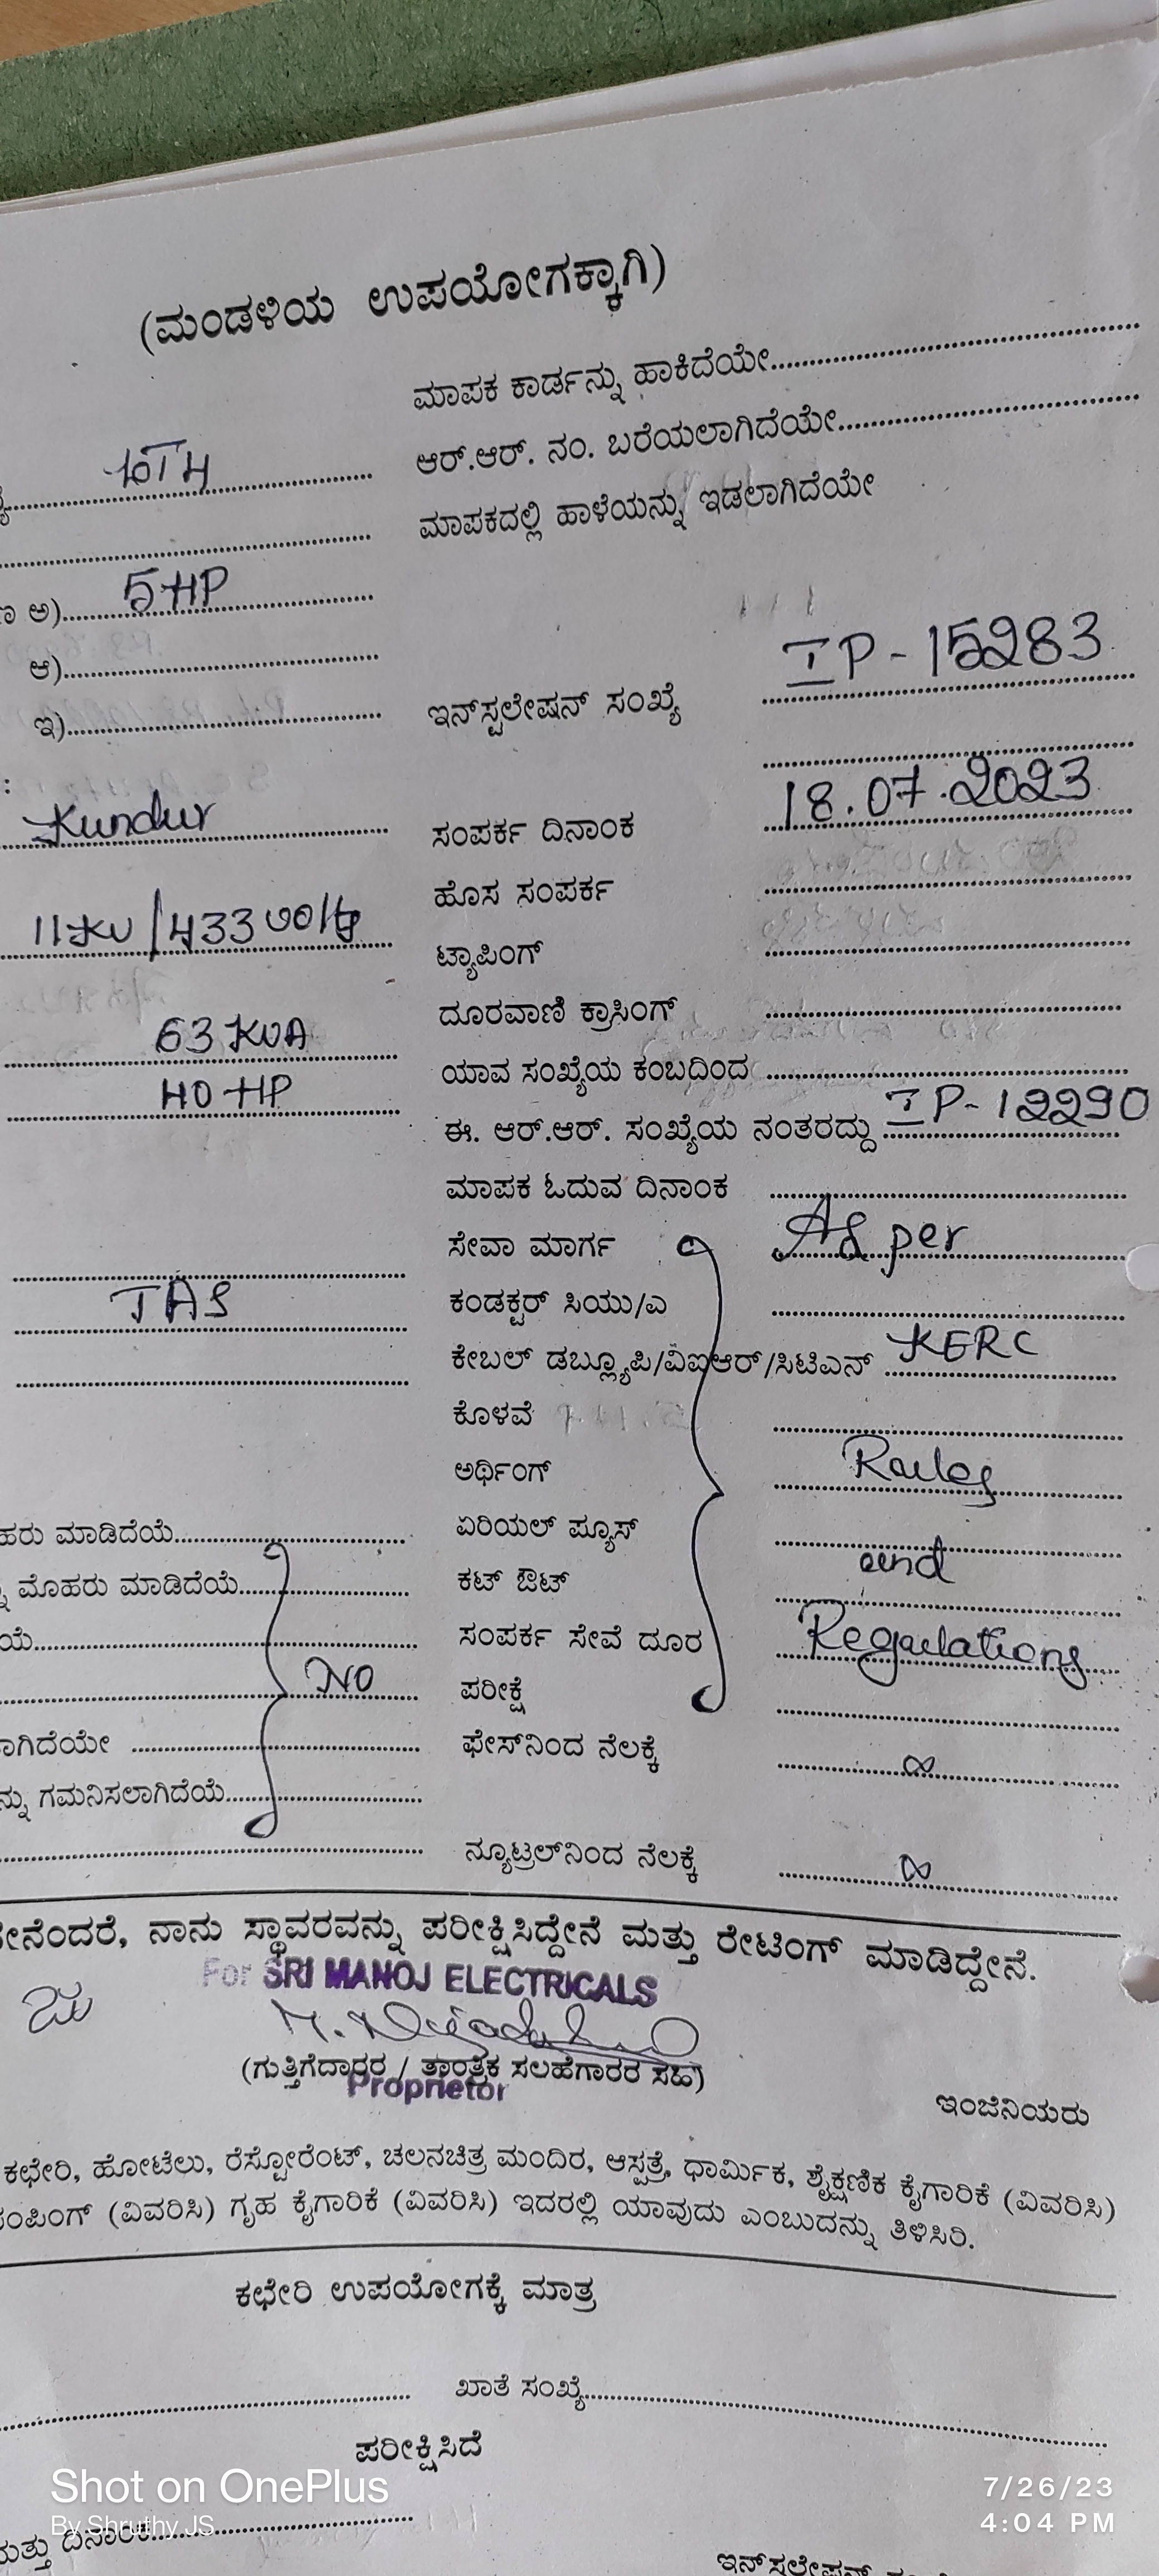 (ಮಂಡಳಿಯ ಉಪಯೋಗಕ್ಕಾಗಿ)
ಮಾಪಕ ಕಾರ್ಡನ್ನು ಹಾಕಿದೆಯೇ
ಆರ್.ಆರ್. ನಂ. ಬರೆಯಲಾಗಿದೆಯೇ
ಮಾಪಕದಲ್ಲಿ ಹಾಳೆಯನ್ನು ಇಡಲಾಗಿದೆಯೇ
ಅ) 5 HP
ಆ)
ಇ) ಇನ್‌ಸ್ಟಲೇಷನ್ ಸಂಖ್ಯೆ IP-15283
Kundur ಸಂಪರ್ಕ ದಿನಾಂಕ 18.07.2023
ಹೊಸ ಸಂಪರ್ಕ
11KV/433 volts ಟ್ಯಾಪಿಂಗ್
ದೂರವಾಣಿ ಕ್ರಾಸಿಂಗ್
63 KVA ಯಾವ ಸಂಖ್ಯೆಯ ಕಂಬದಿಂದ
40 HP ಈ. ಆರ್.ಆರ್. ಸಂಖ್ಯೆಯ ನಂತರದ್ದು IP-12290
ಮಾಪಕ ಓದುವ ದಿನಾಂಕ
ಸೇವಾ ಮಾರ್ಗ As per
TAS ಕಂಡಕ್ಟರ್ ಸಿಯು/ಎ
ಕೇಬಲ್ ಡಬ್ಲ್ಯೂಪಿ/ವಿಐಆರ್/ಸಿಟಿಎಸ್ KERC
ಕೊಳವೆ
ಅರ್ಥಿಂಗ್ Rules
ಹರು ಮಾಡಿದೆಯೆ ಏರಿಯಲ್ ಪ್ಯೂಸ್ and
ಮೊಹರು ಮಾಡಿದೆಯೆ ಕಟ್ ಔಟ್
ಯೆ ಸಂಪರ್ಕ ಸೇವೆ ದೂರ Regulations
NO ಪರೀಕ್ಷೆ
ಾಗಿದೆಯೇ ಫೇಸ್‌ನಿಂದ ನೆಲಕ್ಕೆ ∞
ನ್ನು ಗಮನಿಸಲಾಗಿದೆಯೆ
ನ್ಯೂಟ್ರಲ್‌ನಿಂದ ನೆಲಕ್ಕೆ ∞
ೇನೆಂದರೆ, ನಾನು ಸ್ಥಾವರವನ್ನು ಪರೀಕ್ಷಿಸಿದ್ದೇನೆ ಮತ್ತು ರೇಟಿಂಗ್ ಮಾಡಿದ್ದೇನೆ.
For SRI MANOJ ELECTRICALS
(ಗುತ್ತಿಗೆದಾರರ / ತಾಂತ್ರಿಕ ಸಲಹೆಗಾರರ ಸಹಿ)
Proprietor
ಇಂಜಿನಿಯರು
ಕಛೇರಿ, ಹೋಟೆಲು, ರೆಸ್ಟೋರೆಂಟ್, ಚಲನಚಿತ್ರ ಮಂದಿರ, ಆಸ್ಪತ್ರೆ, ಧಾರ್ಮಿಕ, ಶೈಕ್ಷಣಿಕ ಕೈಗಾರಿಕೆ (ವಿವರಿಸಿ)
ಂಪಿಂಗ್ (ವಿವರಿಸಿ) ಗೃಹ ಕೈಗಾರಿಕೆ (ವಿವರಿಸಿ) ಇದರಲ್ಲಿ ಯಾವುದು ಎಂಬುದನ್ನು ತಿಳಿಸಿರಿ.
ಕಛೇರಿ ಉಪಯೋಗಕ್ಕೆ ಮಾತ್ರ
ಖಾತೆ ಸಂಖ್ಯೆ
ಪರೀಕ್ಷಿಸಿದೆ
Shot on OnePlus
By Shruthy JS
7/26/23
4:04 PM
ಮತ್ತು ದಿನಾಂಕ